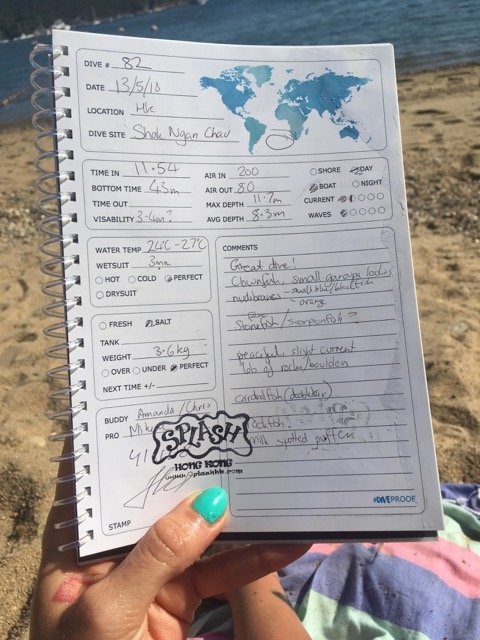 DIVE # 82
DATE 13/5/18
LOCATION HK
DIVE SITE Shek Ngan Chau
TIME IN 11.54
BOTTOM TIME 43m
TIME OUT
VISABILITY 3-4m?
AIR IN 200
AIR OUT 80
MAX DEPTH 11.7m
AVG DEPTH 8.3m
SHORE DAY
BOAT NIGHT
CURRENT
WAVES
WATER TEMP 24°C-27°C
WETSUIT 3mm
HOT COLD PERFECT
DRYSUIT
FRESH SALT
TANK
WEIGHT 3.6kg
OVER UNDER PERFECT
NEXT TIME +/-
BUDDY Amanda / Chris
PRO
STAMP
SPLASH
HONG KONG
www.splashhk.com
COMMENTS
Great dive!
Clownfish, small groups
nudibranes - small blue/black
- orange
Stonefish/scorpionfish?
peaceful, slight current
lots of rocks/boulders
Cardinalfish (doublebar)
spotted puffers
#DIVEPROOF